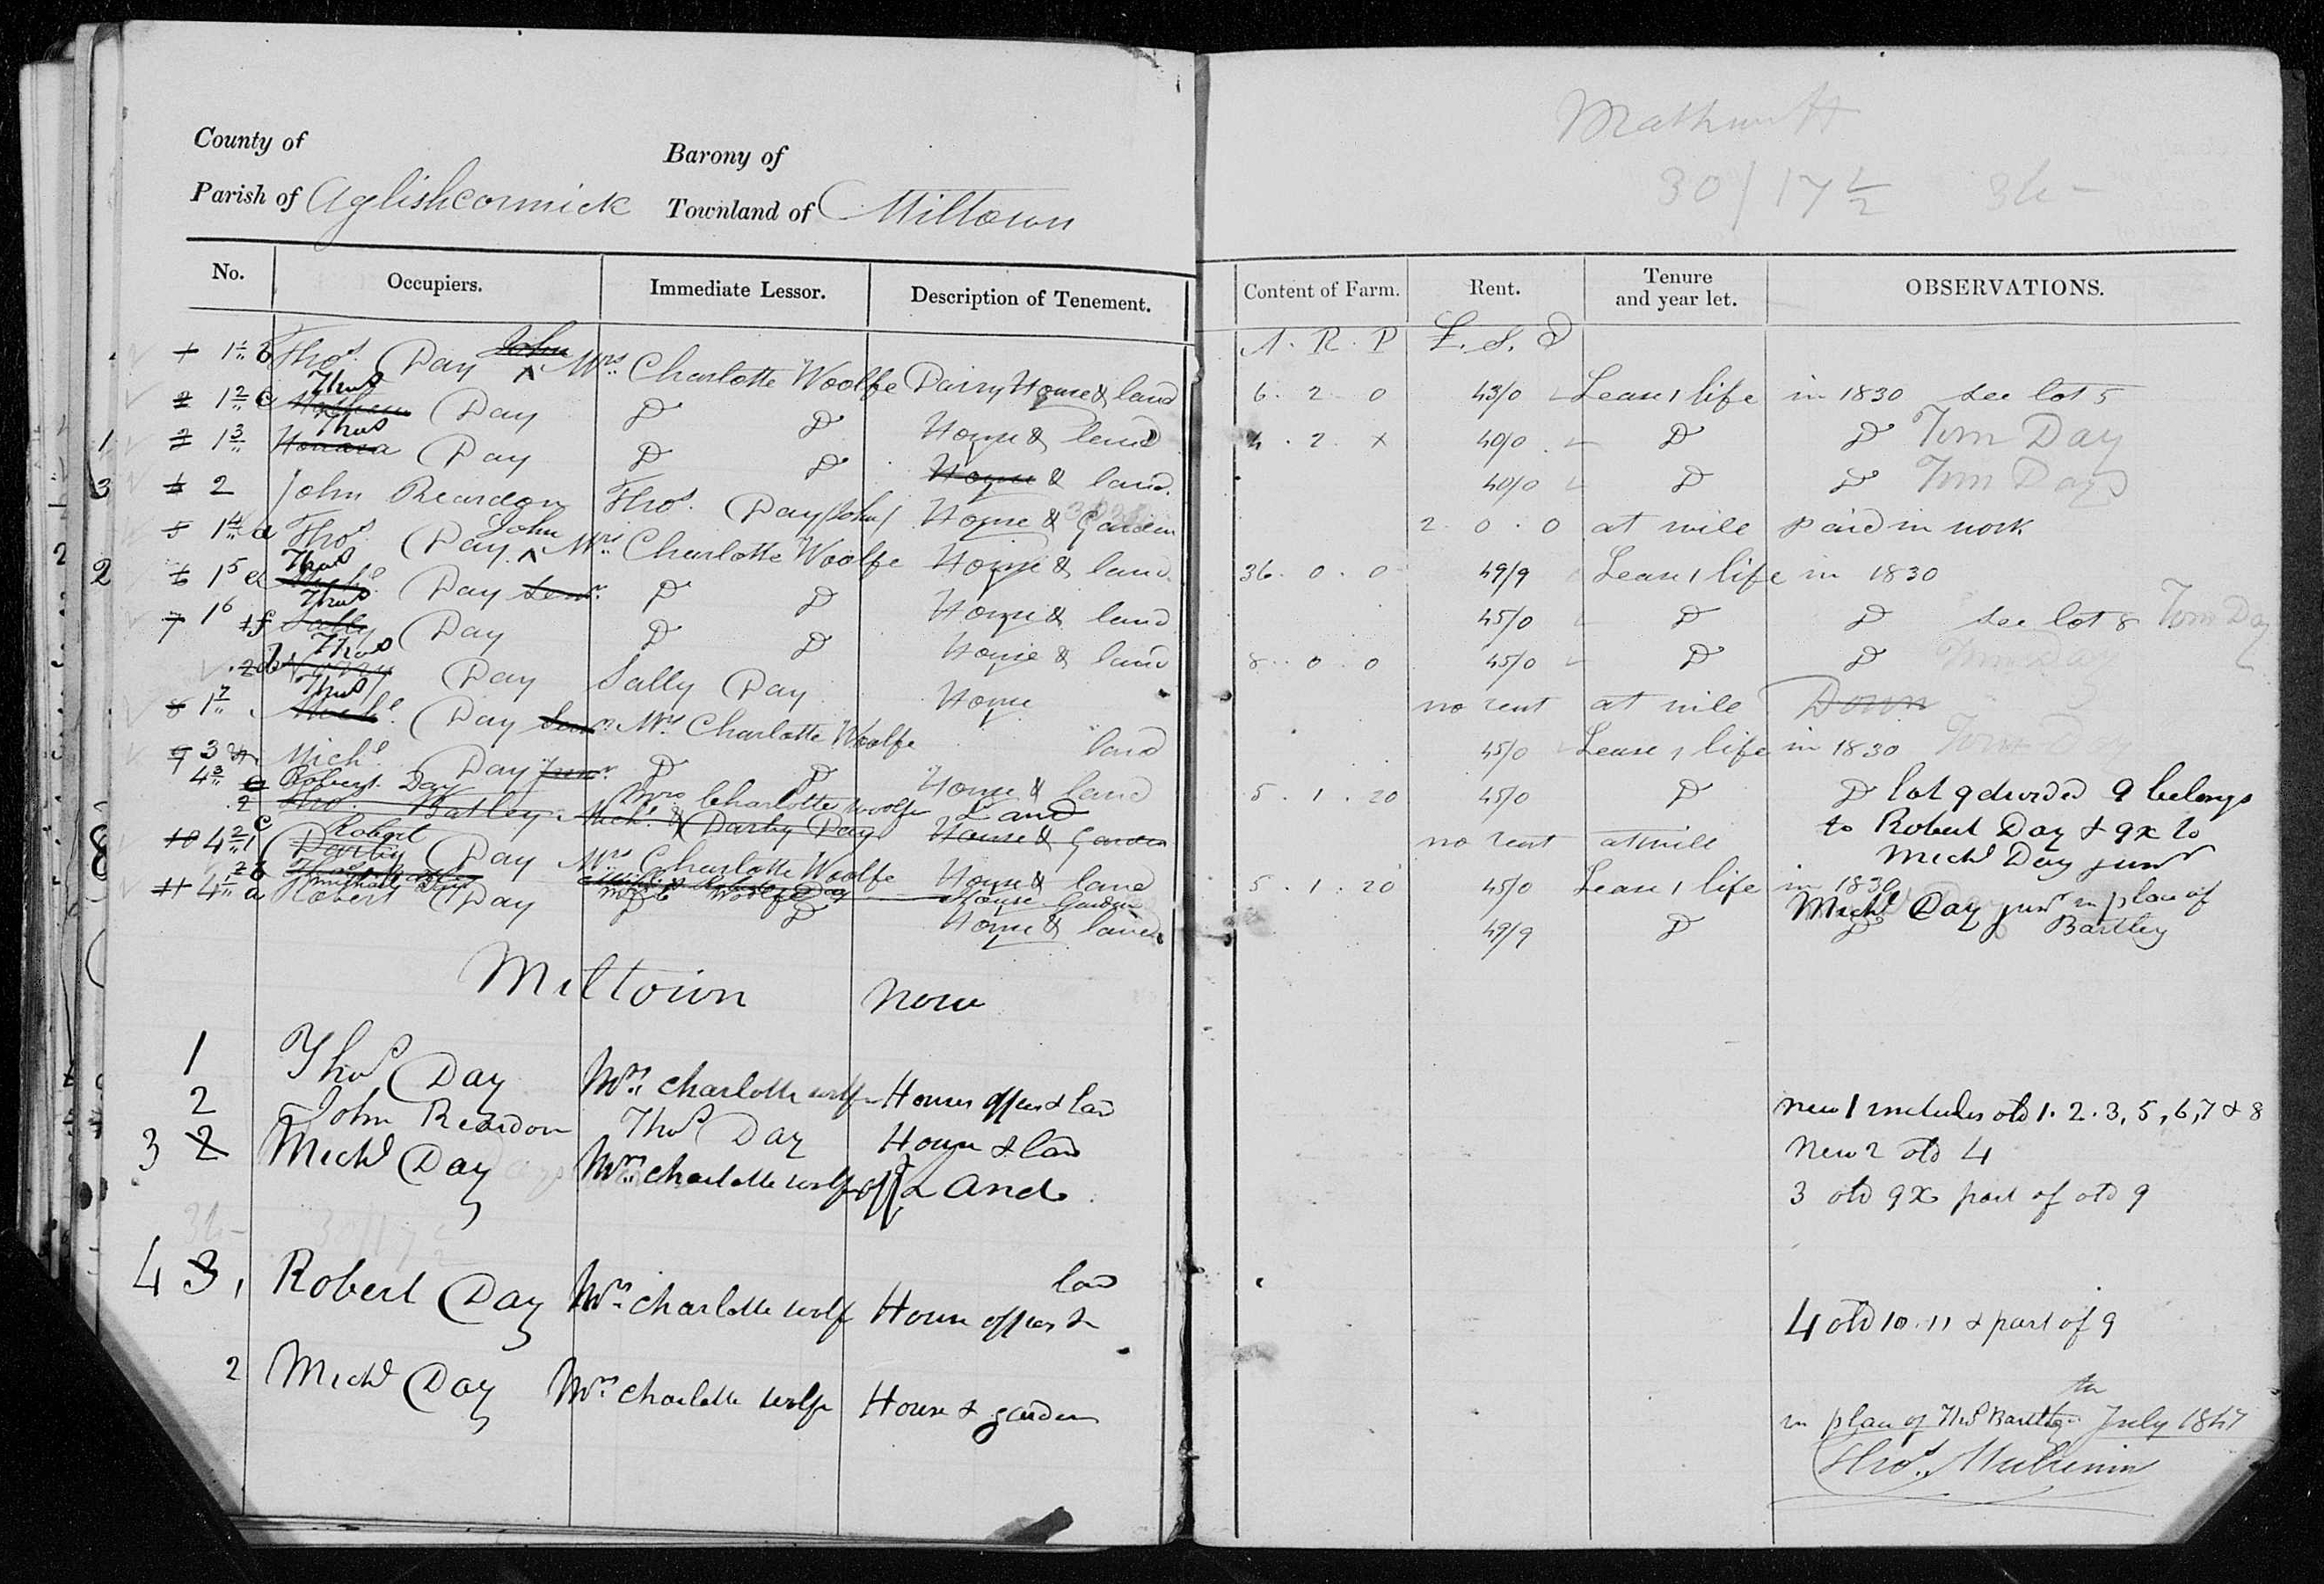 County of
Barony of
Parish of Aglishcormick Townland of Miltown
No. Occupiers. Immediate Lessor. Description of Tenement.
1 1 b Thos. Day John Mrs. Charlotte Woolfe Dairy House & land
2 1 2 c Thos Day D D House & land
1 3 1 3 Thos Honora Day D D House & land
3 4 2 John Reardon Thos. Day (John) House & Garden
5 1 4 a Thos. Day John Mrs. Charlotte Woolfe House & land
2 6 1 5 Thos Michl Day Senr. D D House & land
7 1 6 f Thos Sally Day D D House & land
Thos Day Sally Day House
8 1 7 Thos Michl. Day Senr. Mrs. Charlotte Woolfe land
9 3 Michl. Day Junr. D D House & land
4 3 Robert Day Mrs Charlotte Woolfe Land
2 Thos. Batley Michl. & Darby Day House & Garden
10 4 2 c Robert Darby Day Mrs Charlotte Woolfe House & land
2 b Michael Day Mrs C Woolfe House Garden
11 4 a Robert Day D D House & land
Miltown now
1 Thos Day Mrs. Charlotte wolfe Houses offices & land
2 John Reardon Thos Day House & land
3 2 Michl Day Mrs. Charlotte wolfe off & Land
36-
30/17 1/2
4 3, Robert Day Mrs. Charlotte wolf House offices & land
2 Michl Day Mrs Charlotte wolfe House & garden
30/17 1/2 36-
Content of Farm. Rent. Tenure and year let. OBSERVATIONS.
A. R. P £. S. D
6. 2. 0 43/0 Lease 1 life in 1830 see lot 5
4. 2. x 40/0 D D Tom Day
40/0 D D Tom Day
2. 0. 0 at will paid in work
36. 0. 0 49/9 Lease 1 life in 1830
45/0 D D see lot 8 Tom Day
8. 0. 0 45/0 D D Tom Day
no rent at will Down
45/0 Lease 1 life in 1830 Tom Day
5. 1. 20 45/0 D D lot 9 divided 9 belongs
to Robert Day & 9x to
Michl Day junr
no rent at will
5. 1. 20 45/0 Lease 1 life in 1830
Michl Day junr in place of
Bartley
49/9 D D
new 1 includes old 1. 2. 3, 5, 6, 7 & 8
New 2 old 4
3 old 9x part of old 9
4 old 10. 11 & part of 9
in place of Thos Bartley July 1847